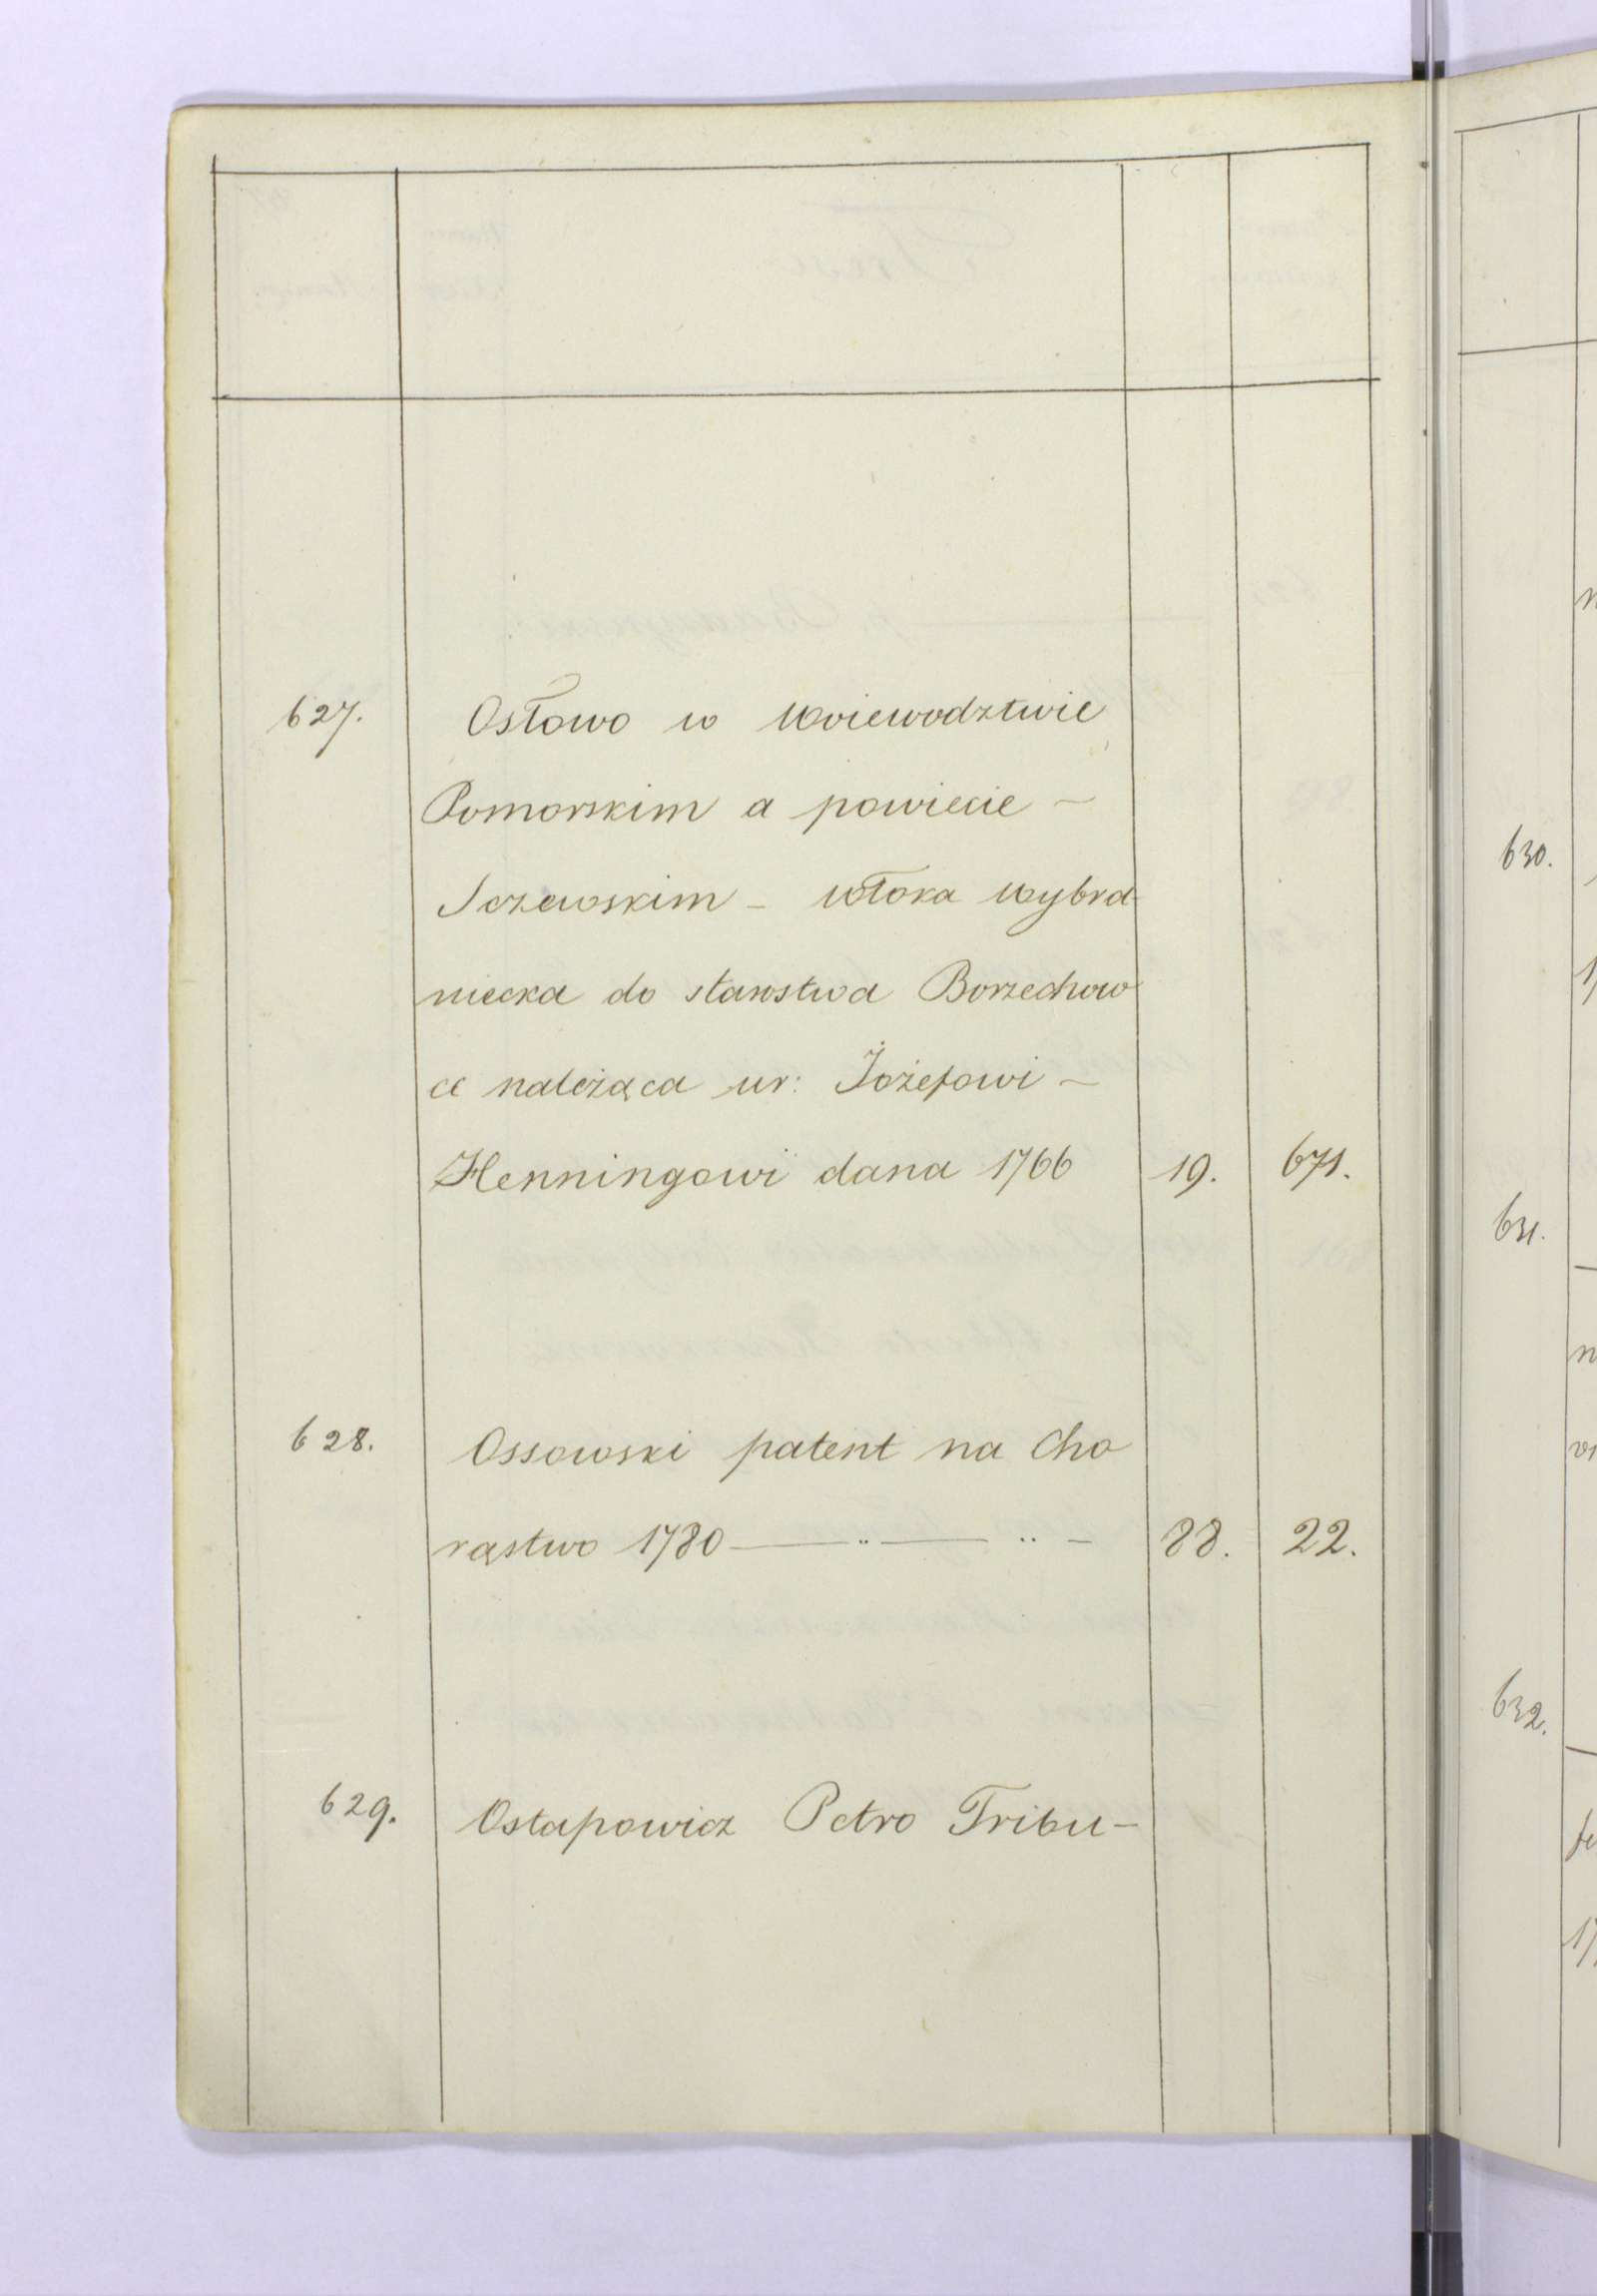 627. Osłowo w Woiewodztwie
Pomorskim a powiecie -
Sczewskim - włoka wybra-
niecka do starostwa Borzechow
ce należąca ur: Jożefowi -
Henningowi dana 1766 19. 671.
628. Ossowski patent na Cho
rąstwo 1780 — .. — .. - 88. 22.
629. Ostapowicz Petro Tribu-
630.
631.
632.